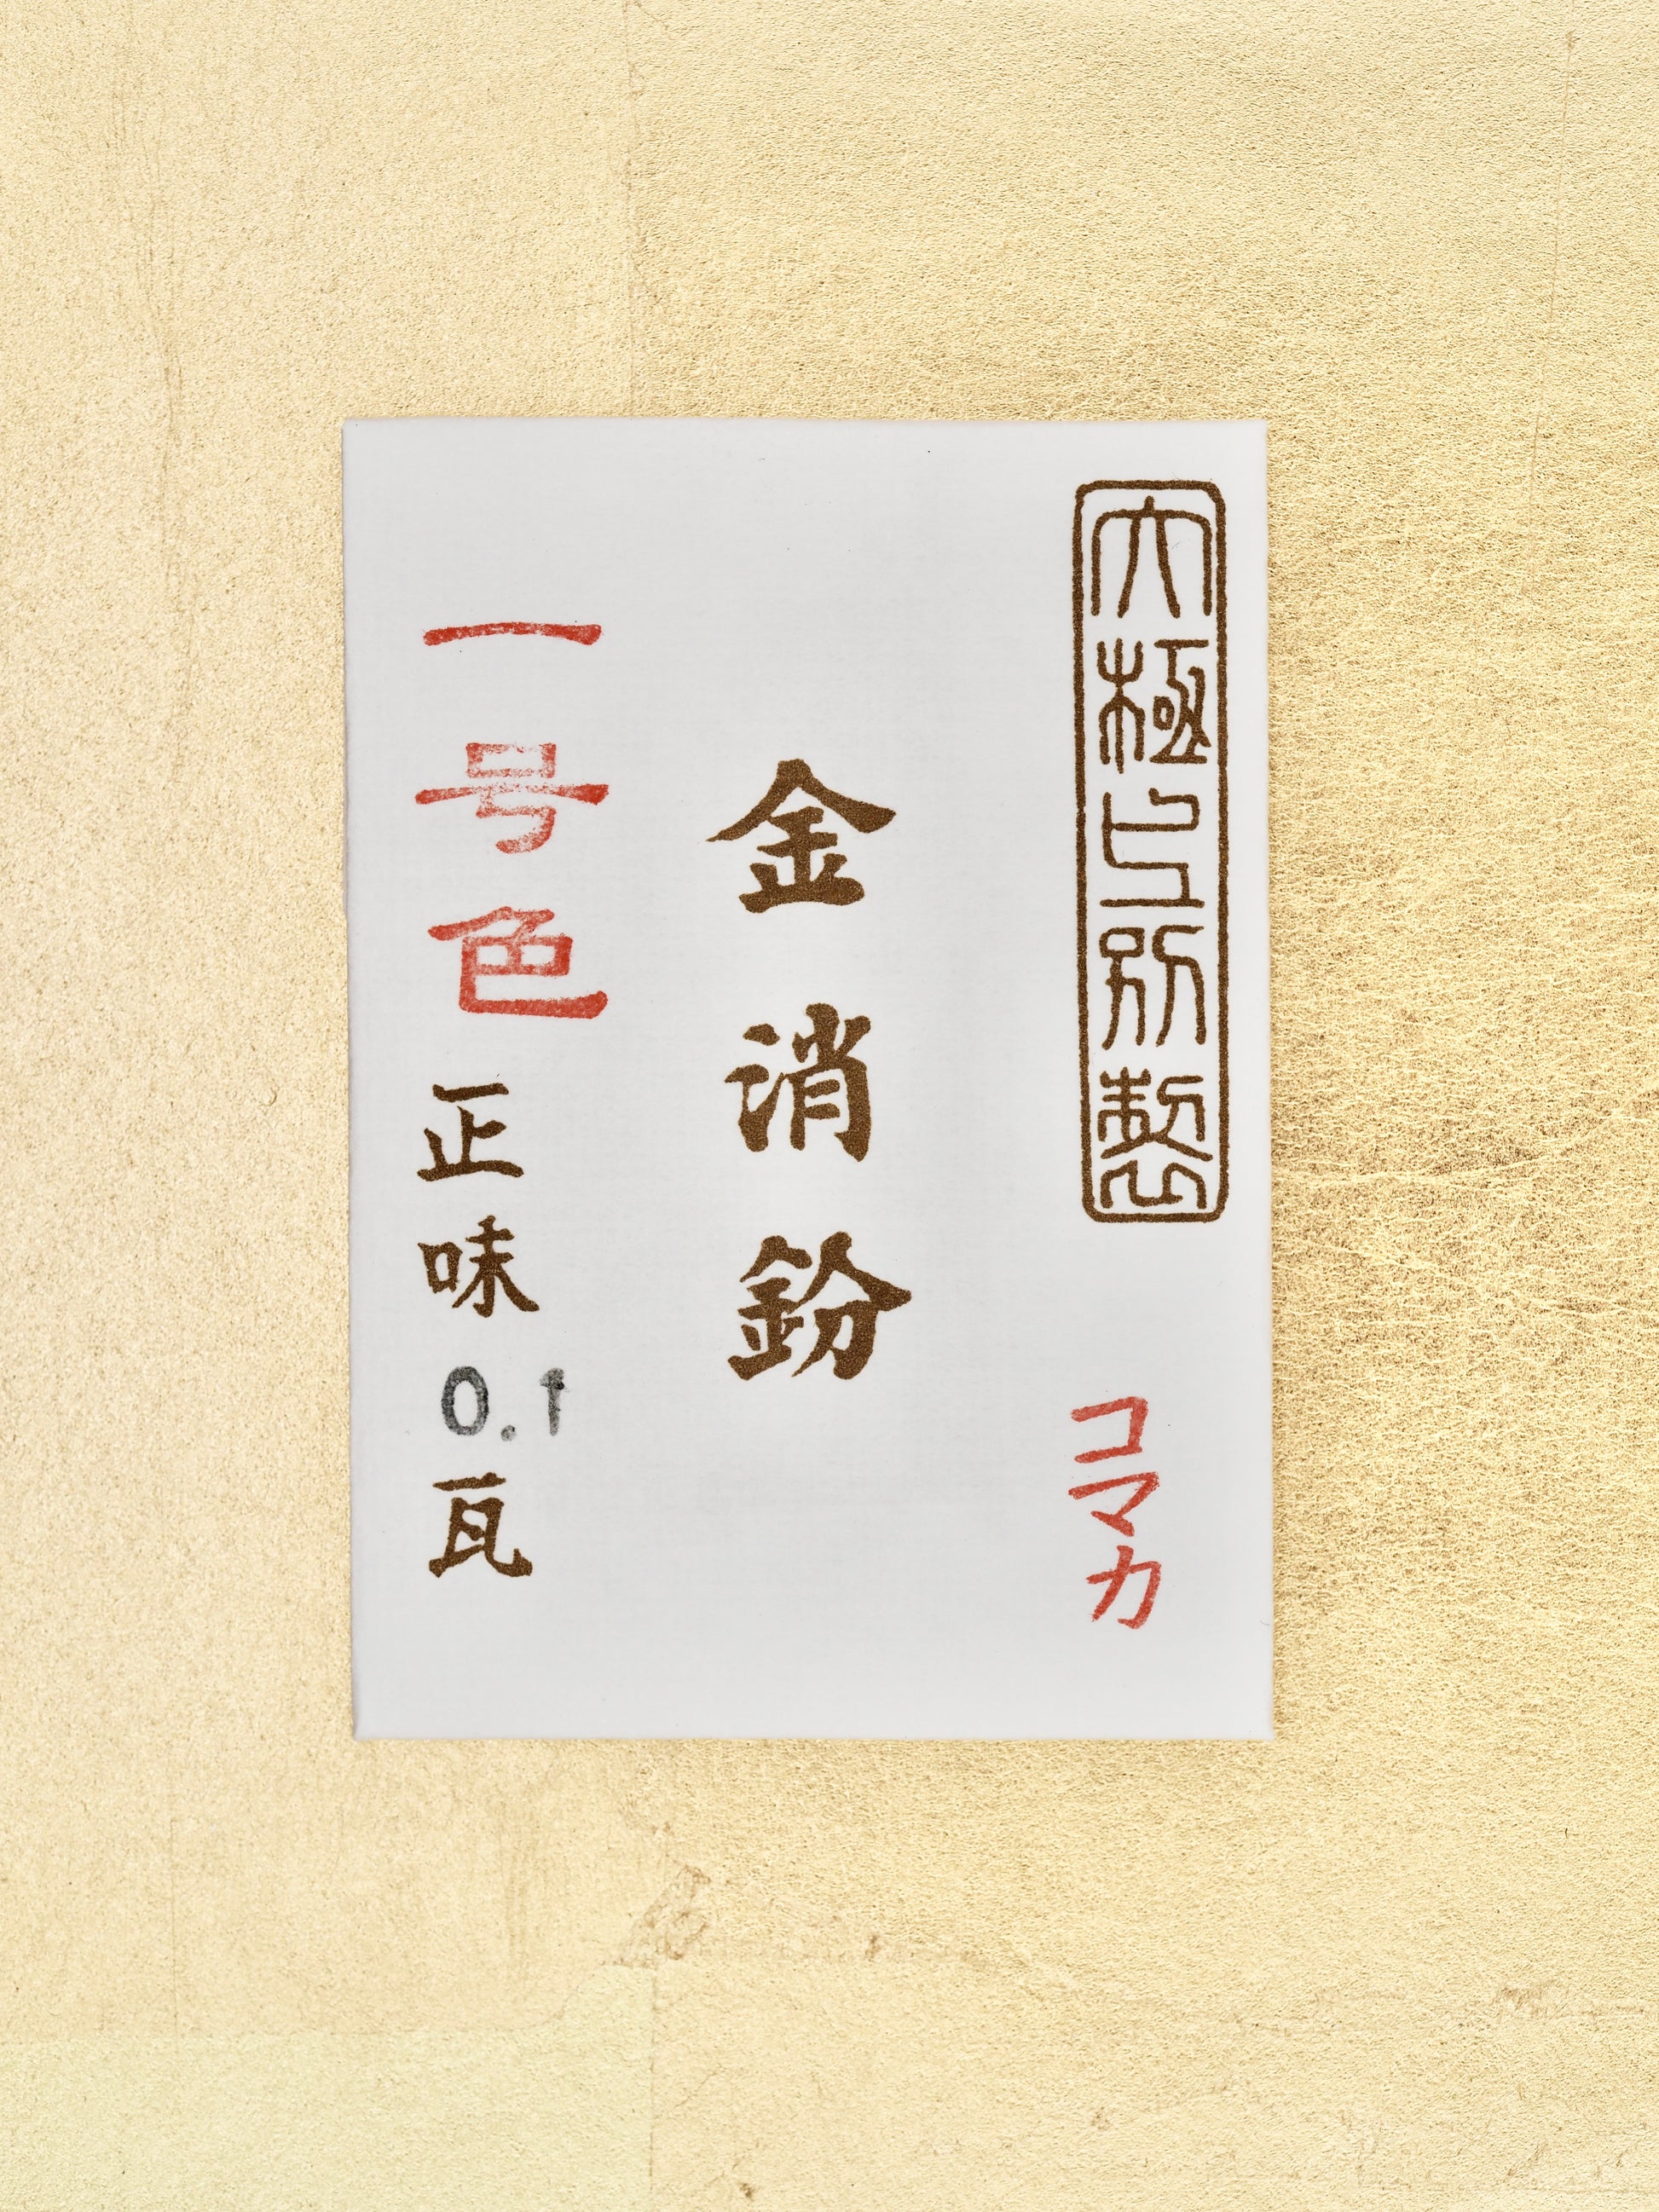 大極上別製
コマカ
金消鈖
一号色
正味0.1瓦